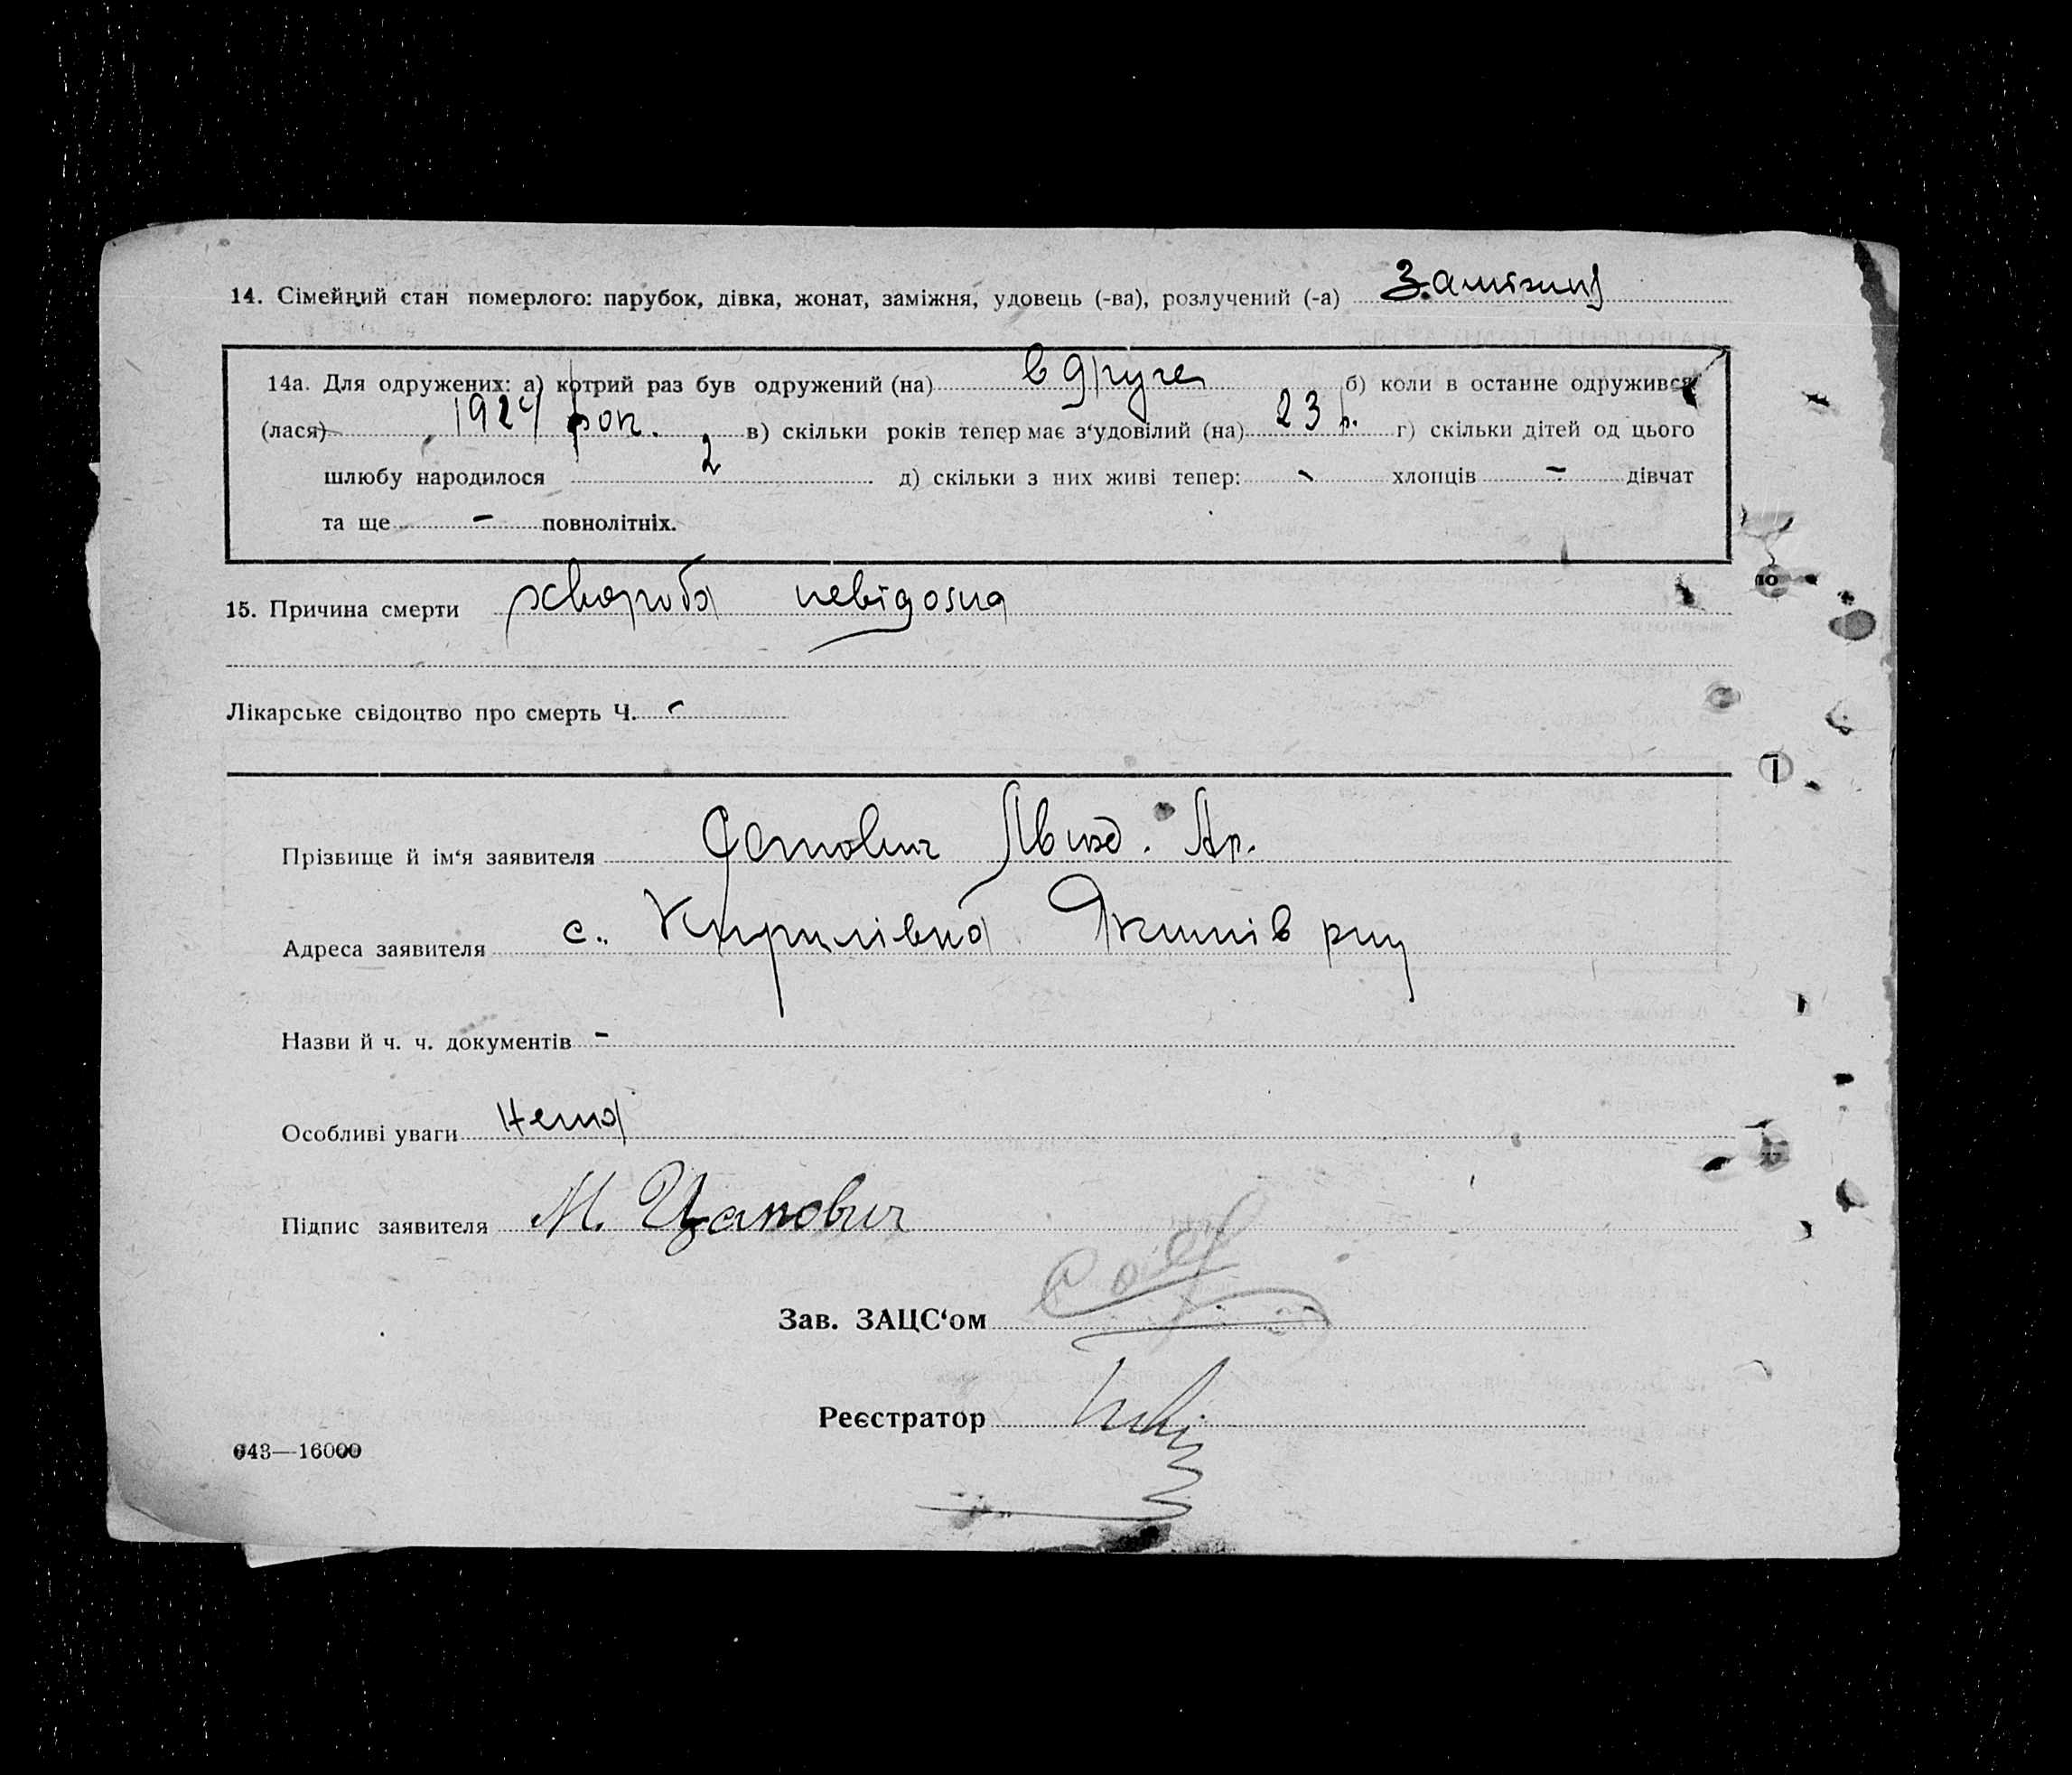 14. Сімейний стан померлого: парубок, дівка, жонат, заміжня, удовець (-ва), розлучений (-а)
14а. Для одружених: а) котрий раз був одружений (на) в друге б) коли в останне одружився
(лася) 192 рок. в) скільки років тепер має з‘удовілий (на) 23 р. г) скільки дітей од цього
шлюбу народилося 2 д) скільки з них живі тепер: - хлопців - дівчат
та ще - повнолітніх.
15. Причина смерти хвороба невідома
Лікарське свідоцтво про смерть Ч. -
Прізвище й ім‘я заявителя
Адреса заявителя с. Кирилівка
Назви й ч. ч. документів -
Особливі уваги Нема
Підпис заявителя М.
Зав. ЗАЦС‘ом
Реєстратор
643—16000
10